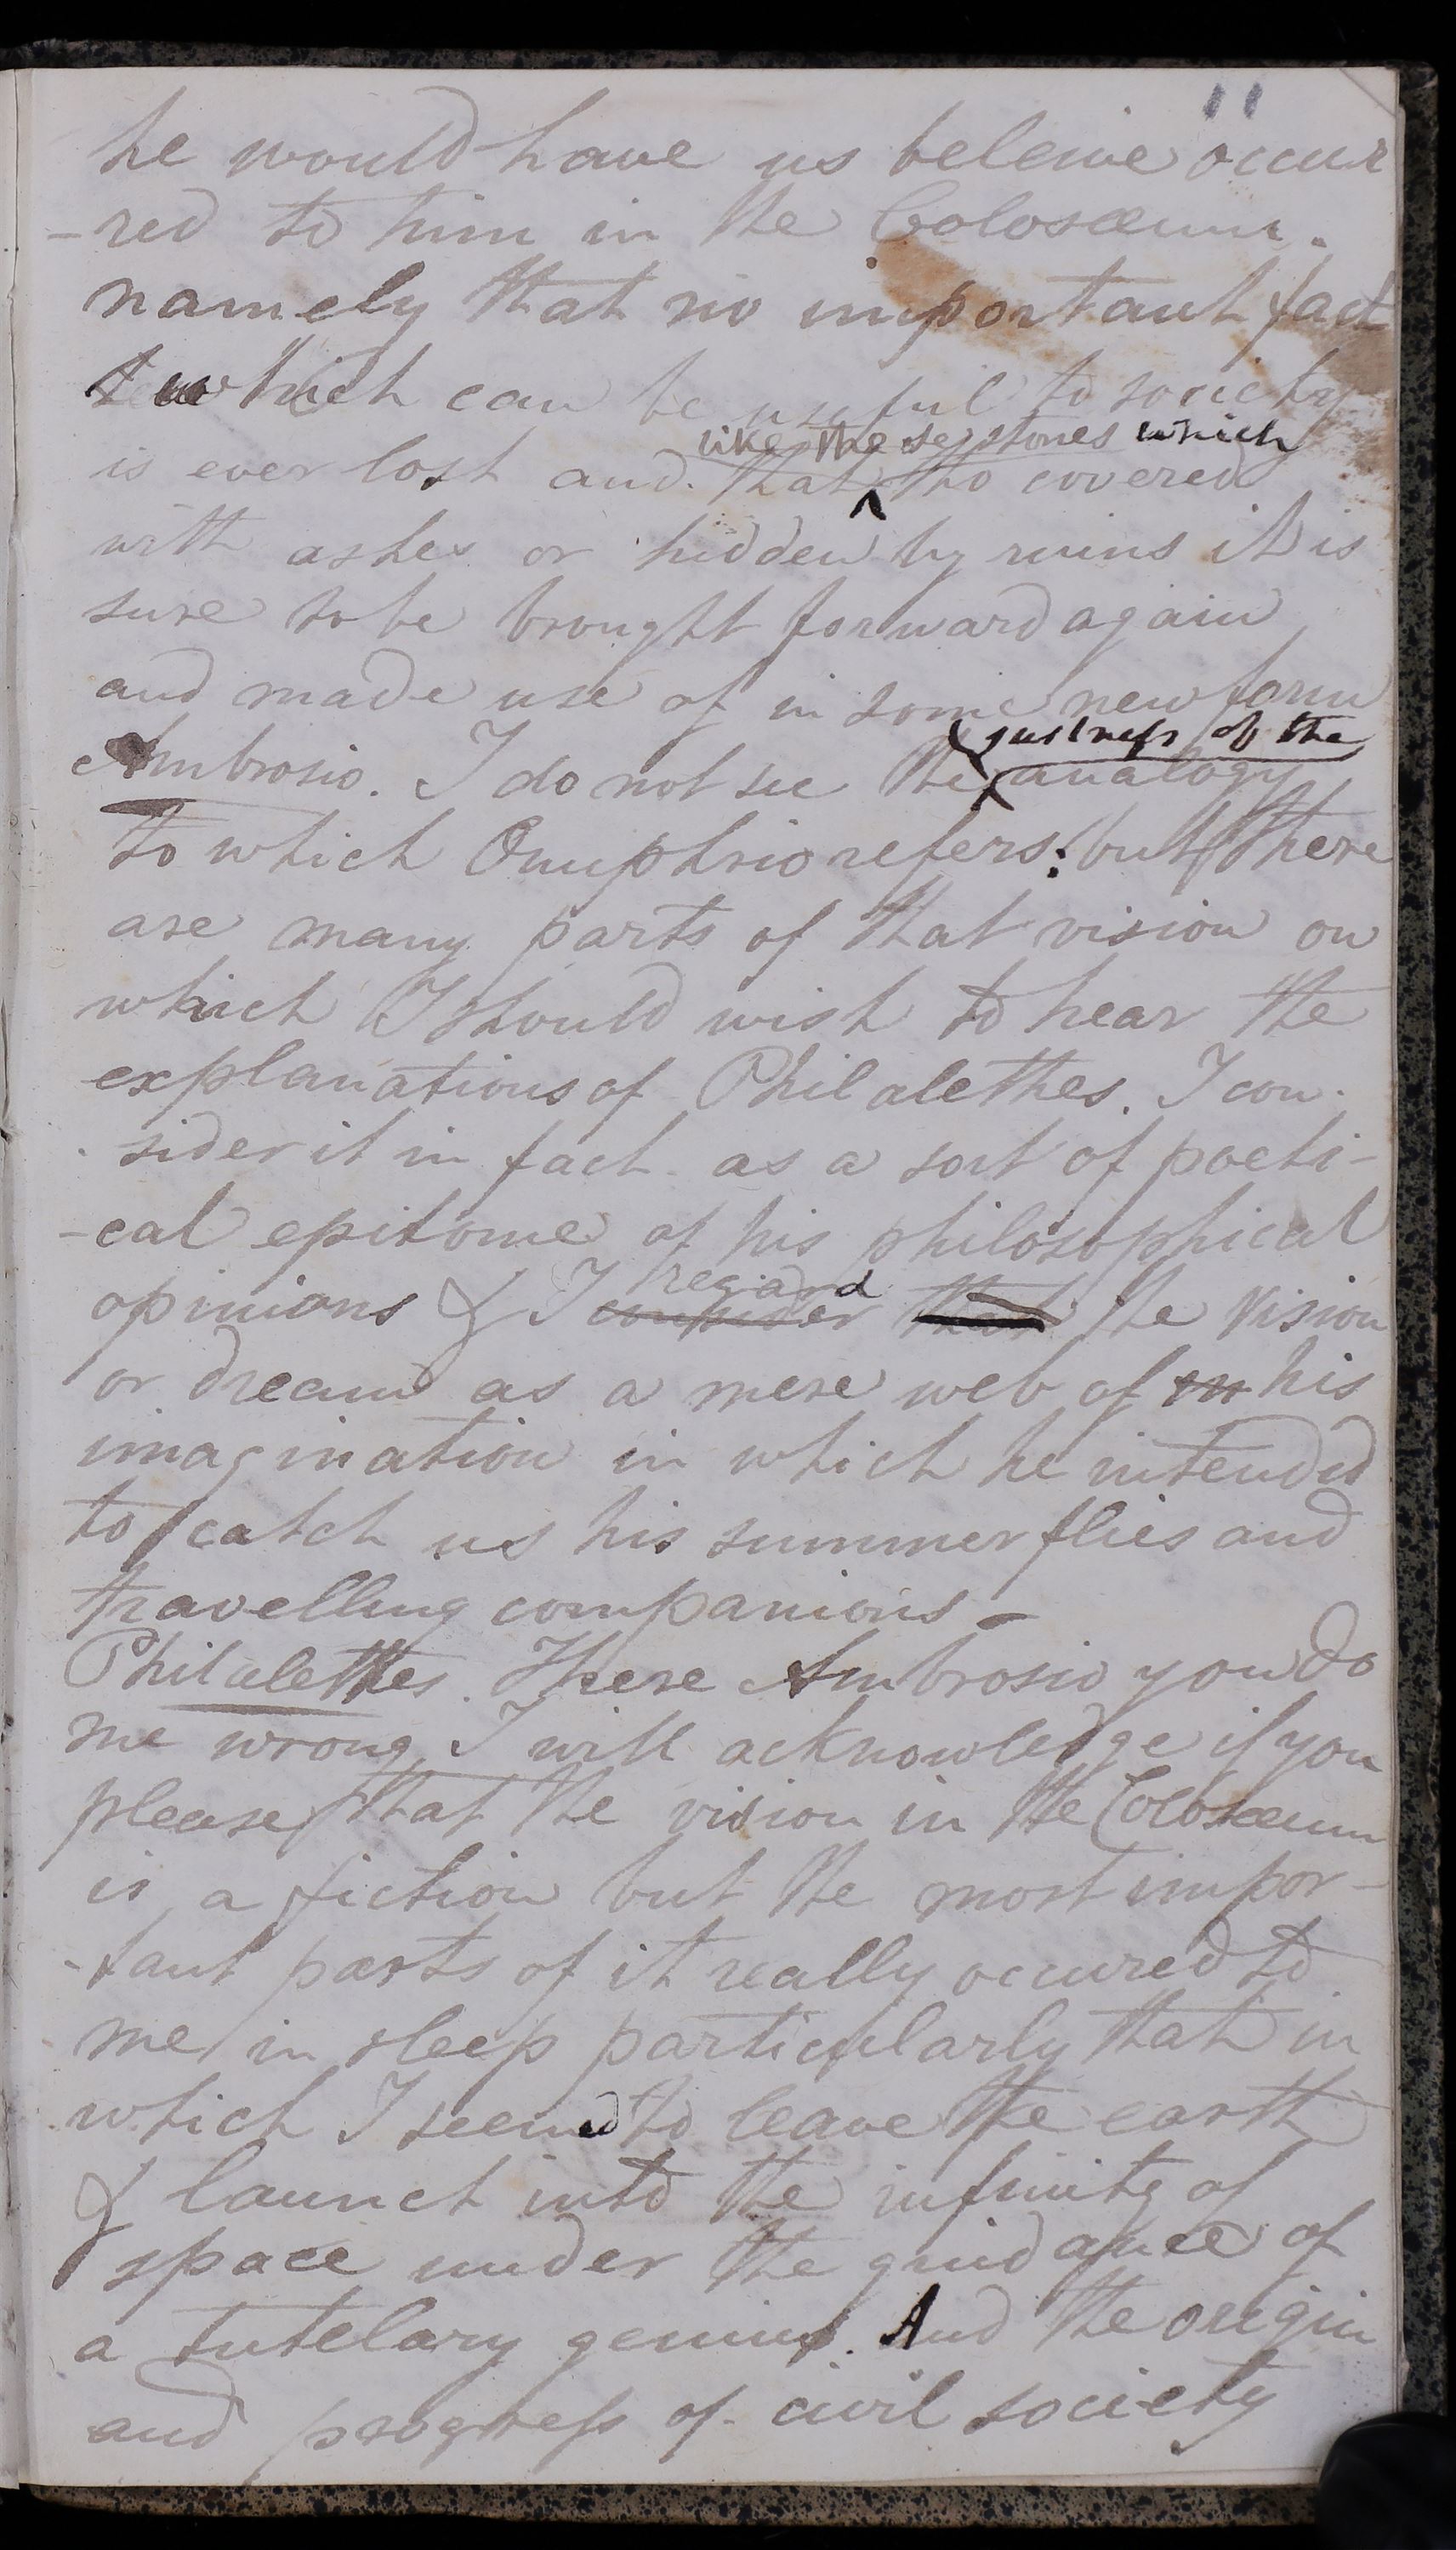 11
he would have us beleive occur
-red to him in the Colosæum.
namely that no important fact
which can be useful to society
like these stones which
is ever lost and that tho covered
with ashes or hidden by ruins it is
sure to be brought forward again
and made use of in some new form
justness of the
Ambrosio. I do not see the analogy
to which Onuphrio refers: but there
are many parts of that vision on
which I should wish to hear the
explanations of Philalethes. I con-
-sider it in fact as a sort of poeti-
-cal epitome of his philosophical
regard
opinions & I consider that the Vision
or dream as a mere web of his
imagination in which he intended
to catch us his summer flies and
travelling companions -
Philalethes. There Ambrosio you do
me wrong, I will acknowledge if you
please that the vision in the Colosæum
is a fiction but the most impor-
-tant parts of it really occured to
me in sleep particularly that in
which I seemed to leave the earth
& launch into the infinity of
space under the guidance of
a tutelary genius. And the origin
and progress of civil society